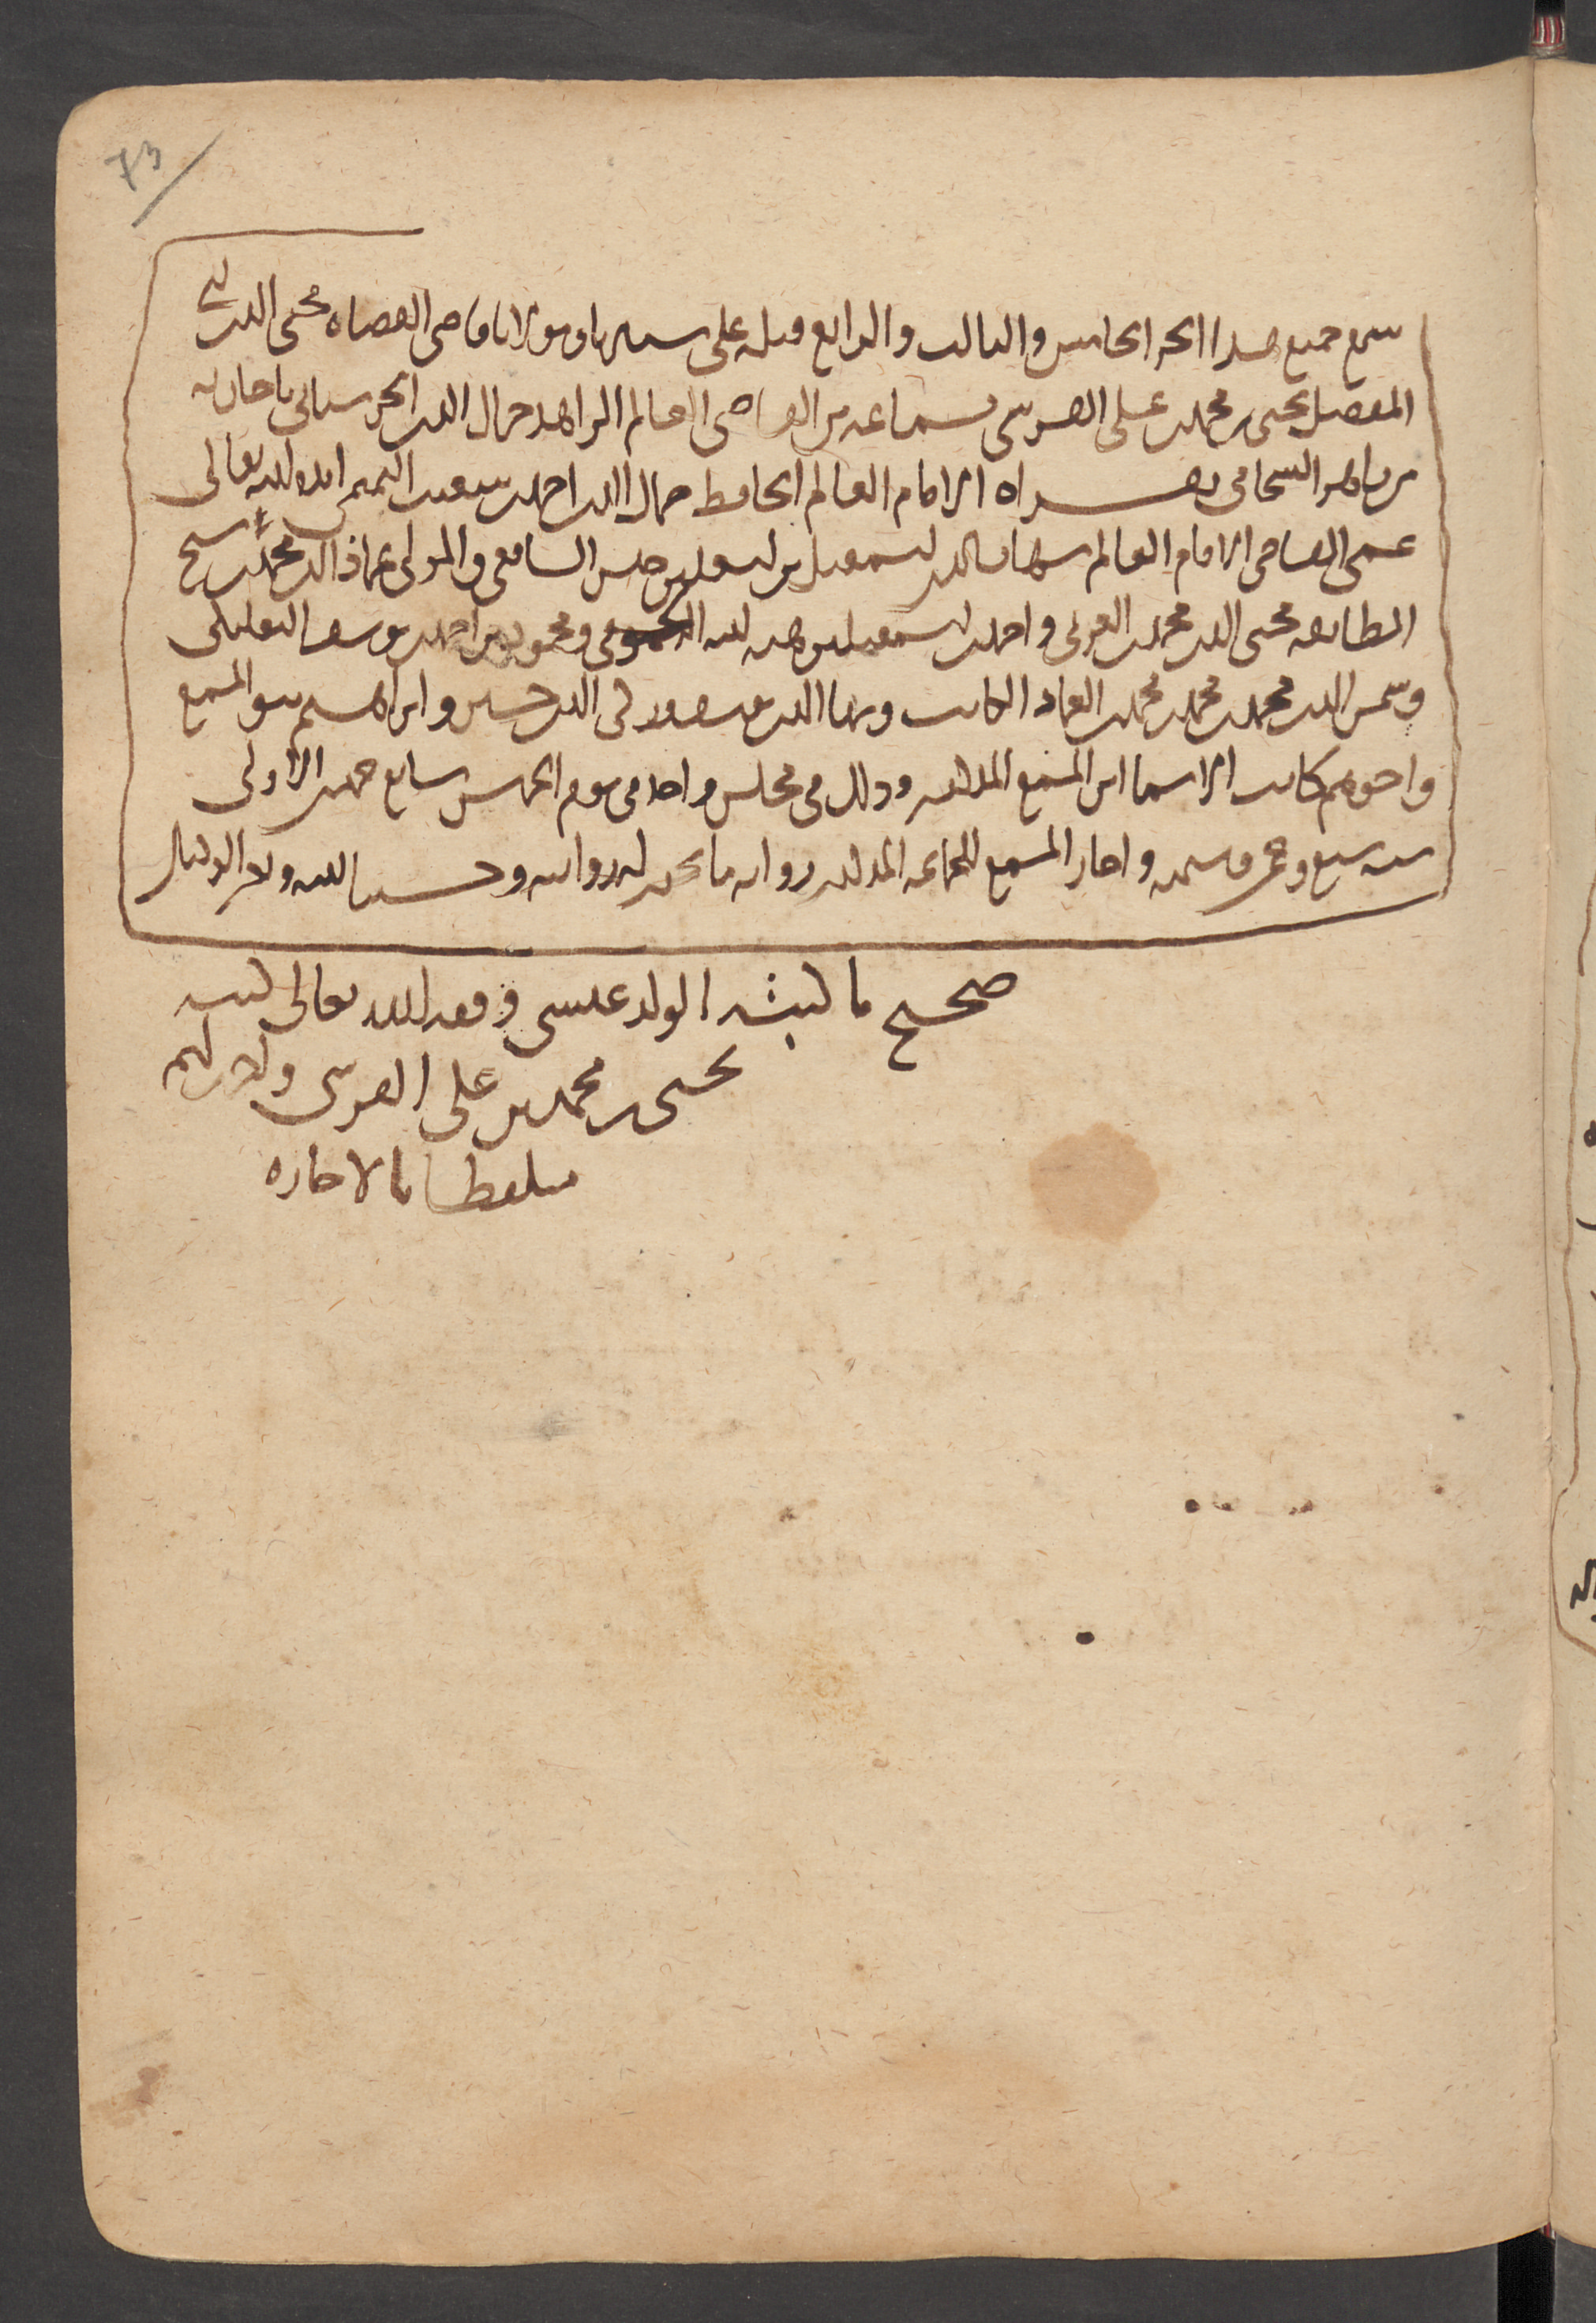 73
سمع جميع هذا الجزء الخامس والثالث والرابع قبله على سيدنا ومولانا قاضي القضاة محيي الدين ابي
المفضل يحيى بن محمد بن علي القرشي بسماعه من القاضي العالم الزاهد جمال الدين الحرستاني باجازته
من زاهر الشحامي بقراءة الامام العالم الحافظ جمال الدين احمد بن شعيب التميمي ايده الله تعالى
عمي القاضي الامام العالم شهاب الدين اسمعيل بن اسمعيل بن حلس الشافعي والمولى عماد الدين محمد بن شيخ
الطائفة محيي الدين محمد بن العربي واحمد بن اسمعيل بن هبة الله ومحمود بن احمد بن يوسف البعلبكي
وشمس الدين محمد بن محمد بن محمد بن العماد الكاتب وبها الدين يوسف وزكي الدين حسين وابراهيم بنو المسمع
واخوهم كاتب الاسما ابن المسمع المذكور وذلك في مجلس واحد في يوم الخميس سابع جمدى الاولى
سنة سبع وخمسين وستمئة واجاز المسمع للجماعة المذكورين رواية ما يجوز له روايته وحسبنا الله ونعم الوكيل
صحيح ما اثبته الولد عيسى وفقه الله تعالى كتبه
يحيى بن محمد بن علي القرشي واذن لهم
متلفظا بالاجازة